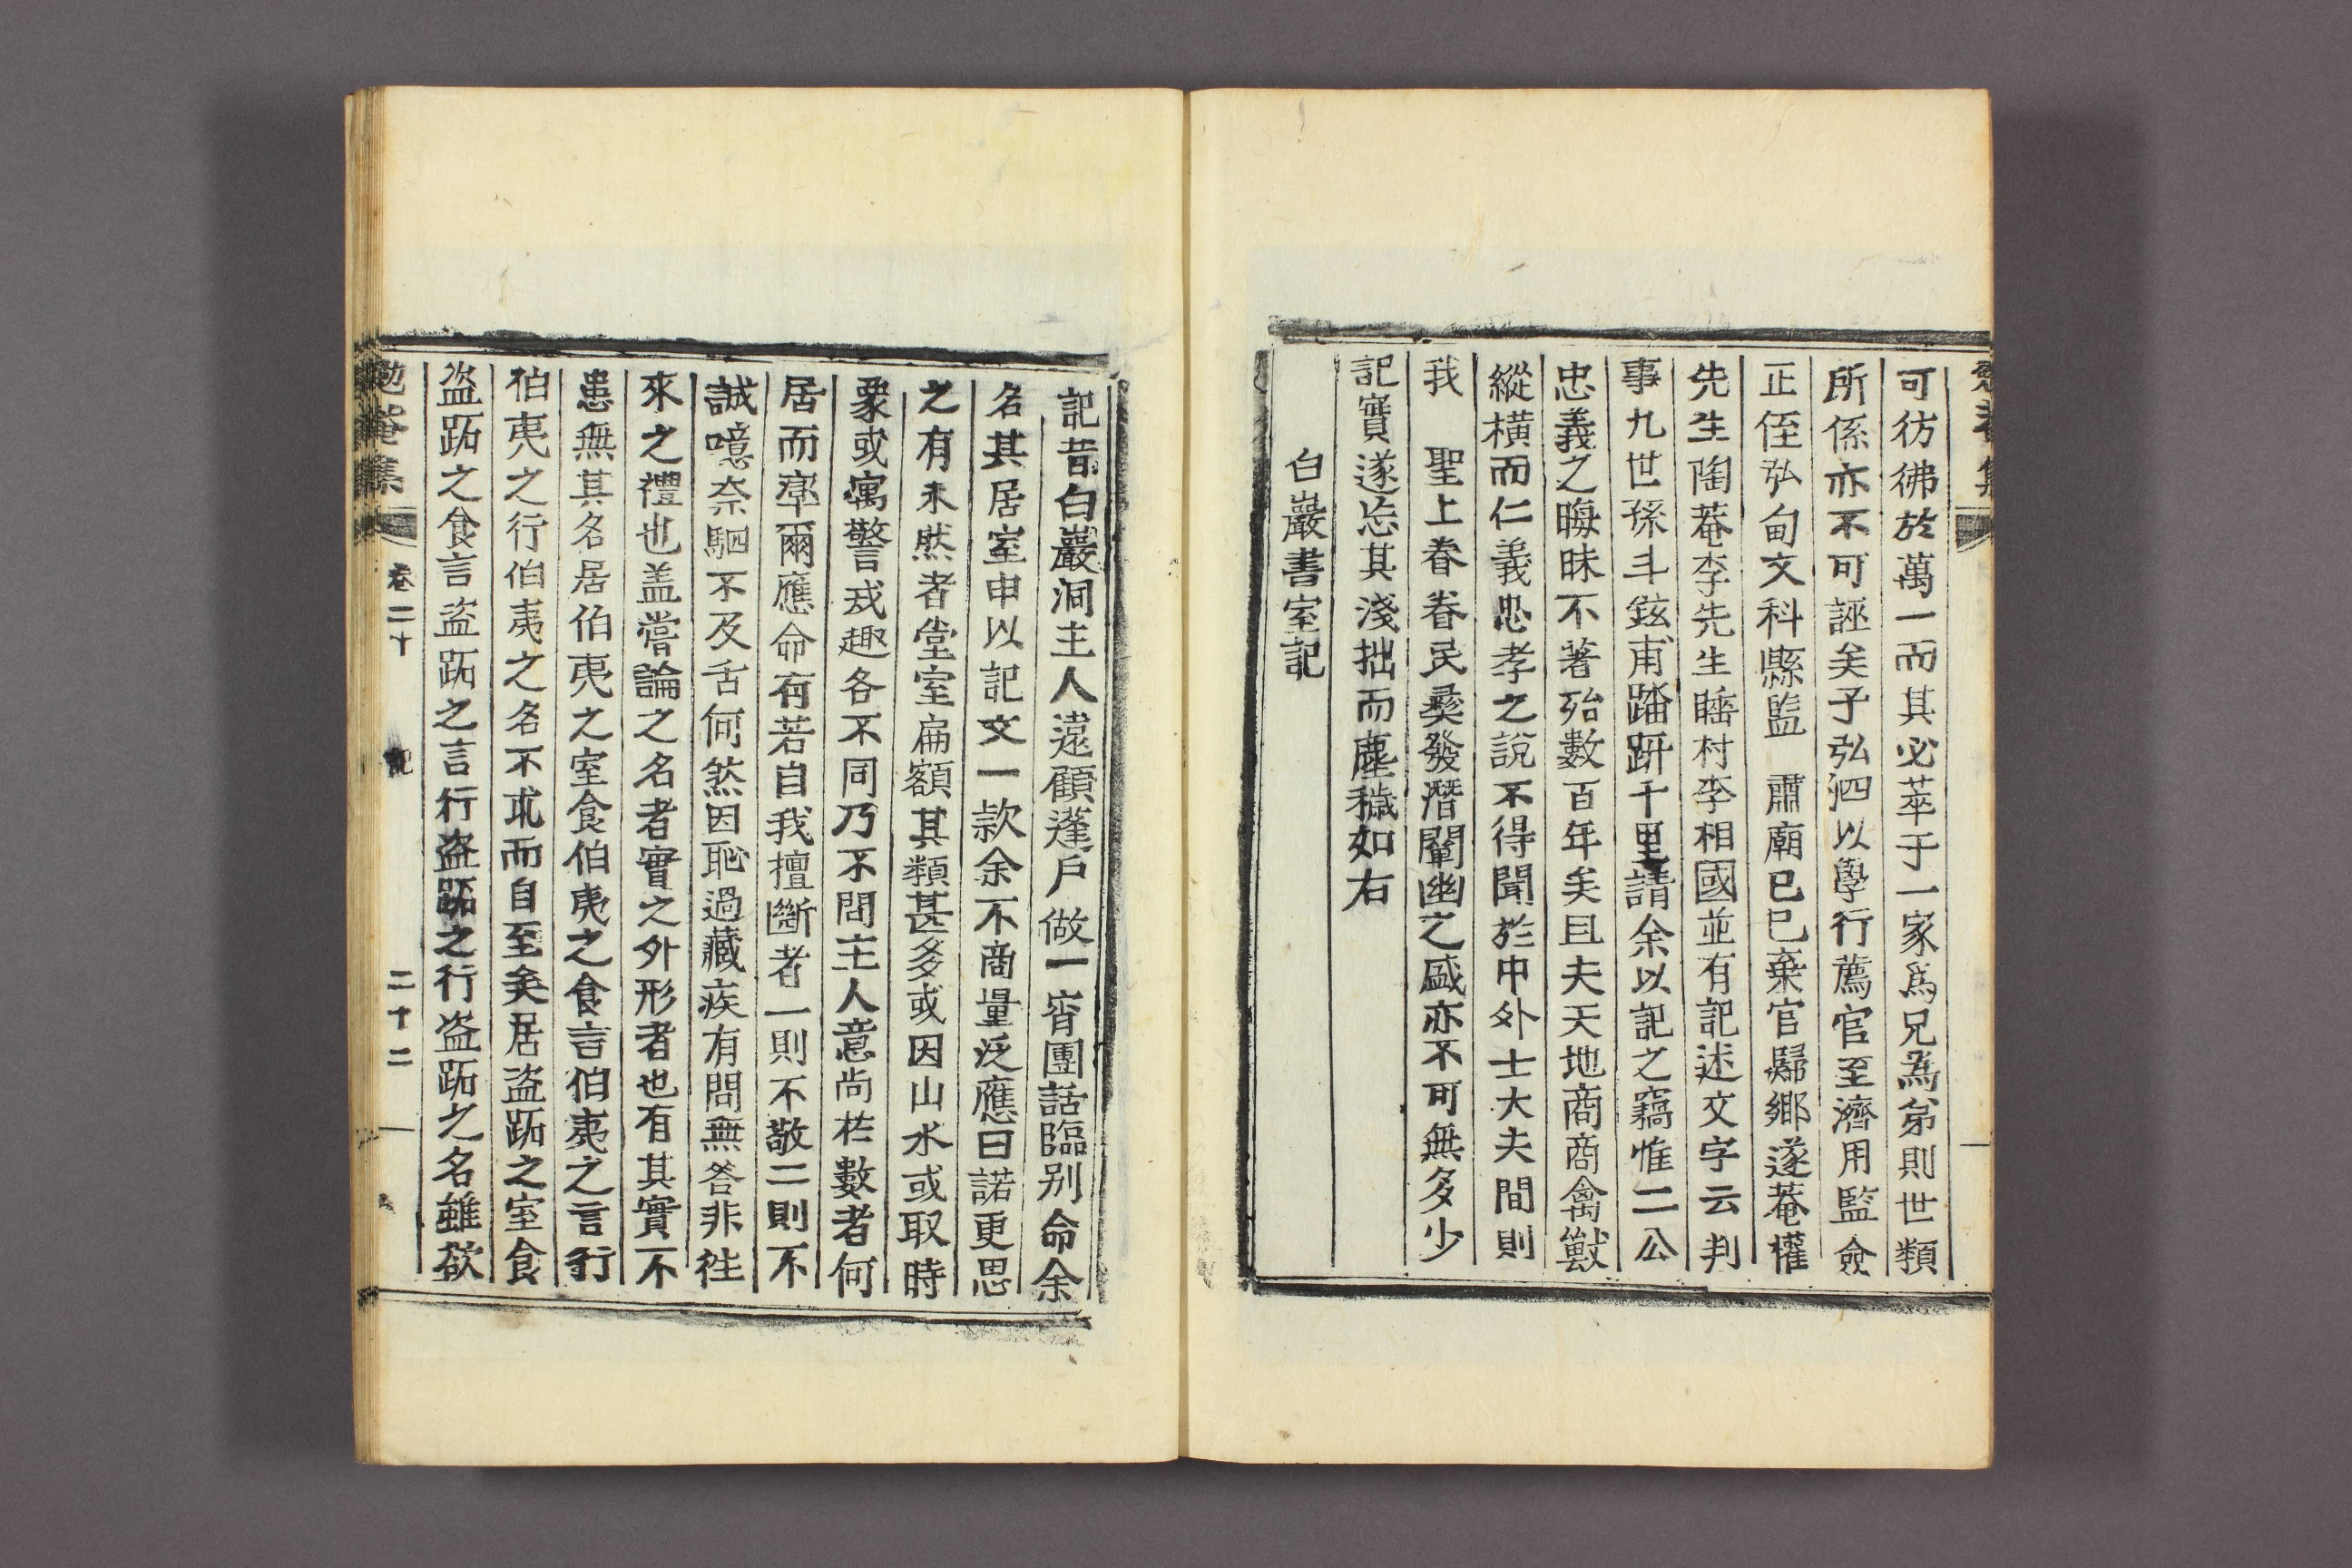 可彷彿於萬一而其必萃于一家爲兄爲弟則世類
所係亦不可誣矣子弘泗以學行薦官至濟用監僉
正侄弘甸文科縣監 肅廟己巳棄官歸鄉遂菴權
先生陶菴李先生𪾼村李相國並有記述文字云判
事九世孫斗鉉甫踏趼千里請余以記之竊惟二公
忠義之晦昧不著殆數百年矣且夫天地商商禽獸
縱橫而仁義忠孝之說不得聞於中外士大夫間則
我 聖上眷眷民彝發潛闡幽之盛亦不可無多少
記實遂忘其淺拙而塵穢如右
白巖書室記
記昔白巖洞主人遠顧蓬戶做一宵團話臨別命余
名其居室申以記文一款余不商量泛應曰諾更思
之有未然者堂室扁額其類甚多或因山水或取時
象或寓警戒趣各不同乃不問主人意尚在數者何
居而率爾應命有若自我擅斷者一則不敬二則不
誠噫奈駟不及舌何然因恥過藏疾有問無答非往
來之禮也盖嘗論之名者實之外形者也有其實不
患無其名居伯夷之室食伯夷之食言伯夷之言行
伯夷之行伯夷之名不求而自至矣居盜跖之室食
盜跖之食言盜跖之言行盜跖之行盜跖之名雖欲
勉菴集 卷二十 記 二十二